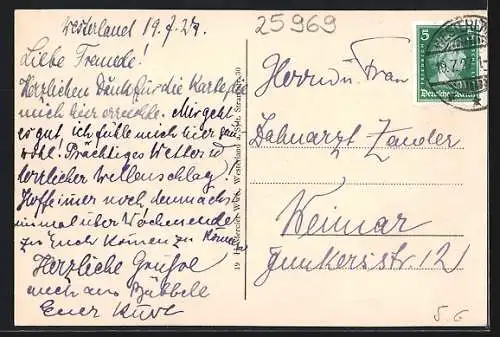 Westerland 19.7.27.
25969
Liebe Freunde!
Herzlichen Dank für die Karte die
mich hier erreichte. Mir geht
es gut, ich fühle mich hier sau
wohl. Prächtiges Wetter u
herrlicher Wellenschlag.
Hoffe immer noch, demnächst
einmal über Wochenende
zu Euch kommen zu können
Herzliche Grüsse
auch an
Euer Kurt
Westerland a. Sylt, Strandstr. 30
5
Deutsches Reich
Herrn u. Frau
Zahnarzt Zander
Weimar
Junkerstr. 12
5 G